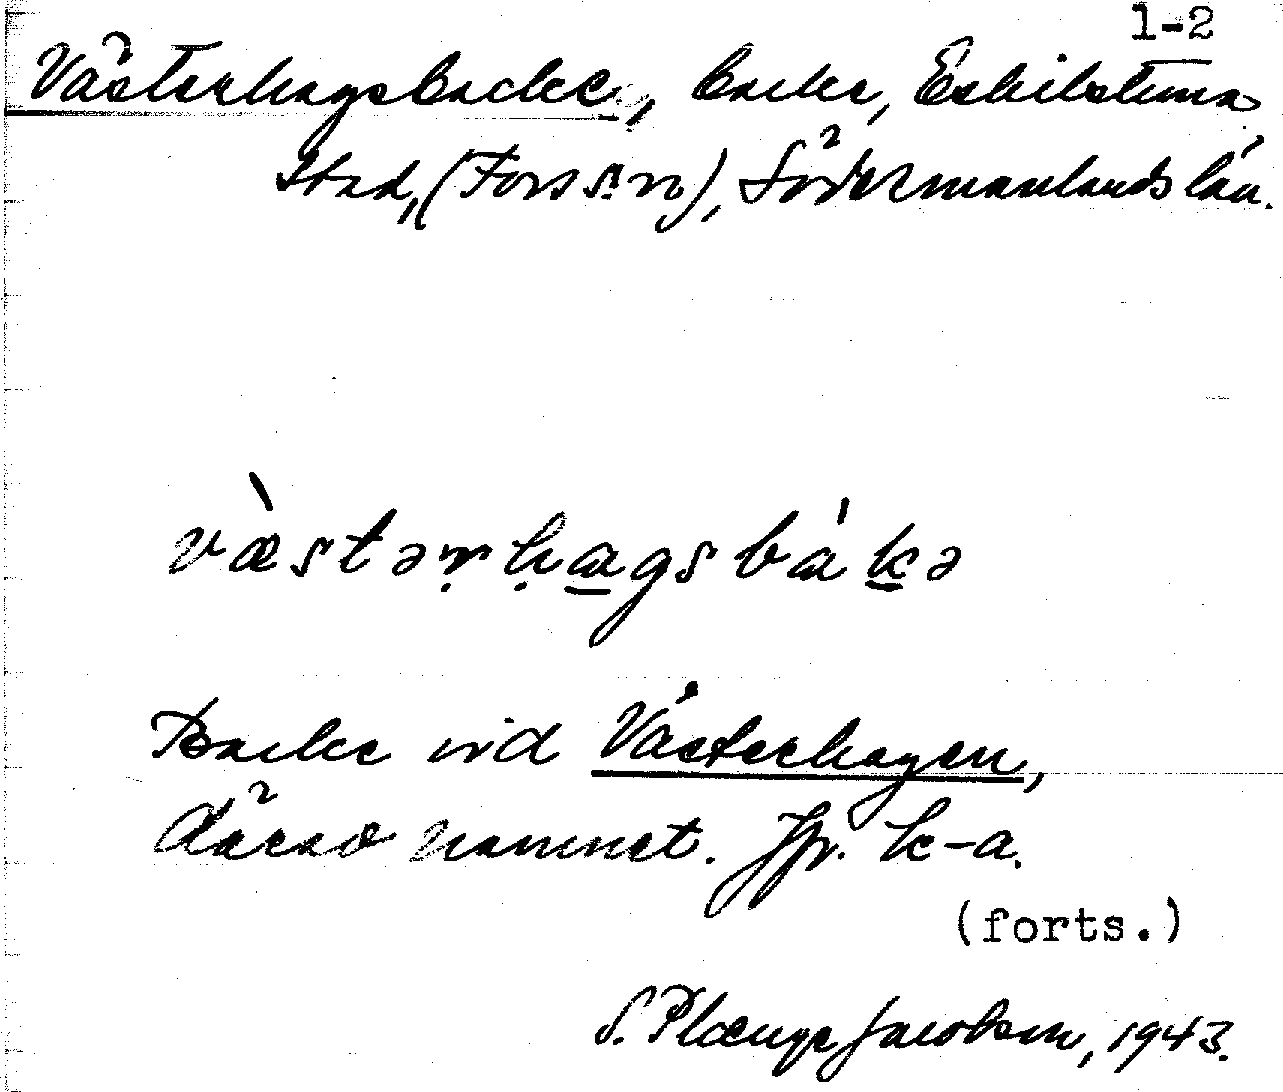 1-2
Västerhagsbacke, backe, Eskilstuna
Stad, (Fors sn), Södermanlands län.
væstəṛḥa̲gsbak̲ə
Backe vid Västerhagen,
därav namnet. Jfr. k-a.
(forts.)
S. Plænge Jacobson, 1943.